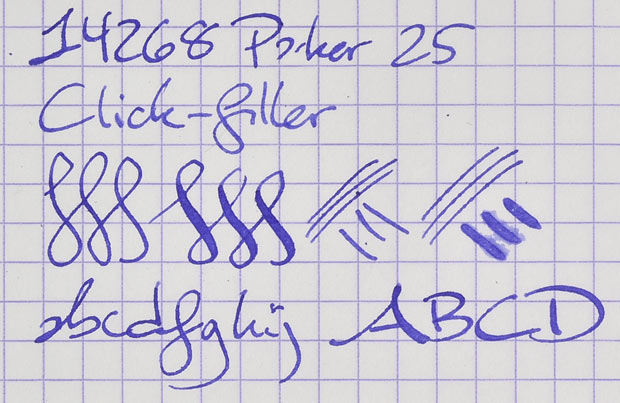 14268 Parker 25
Click-filler
abcdfghij ABCD